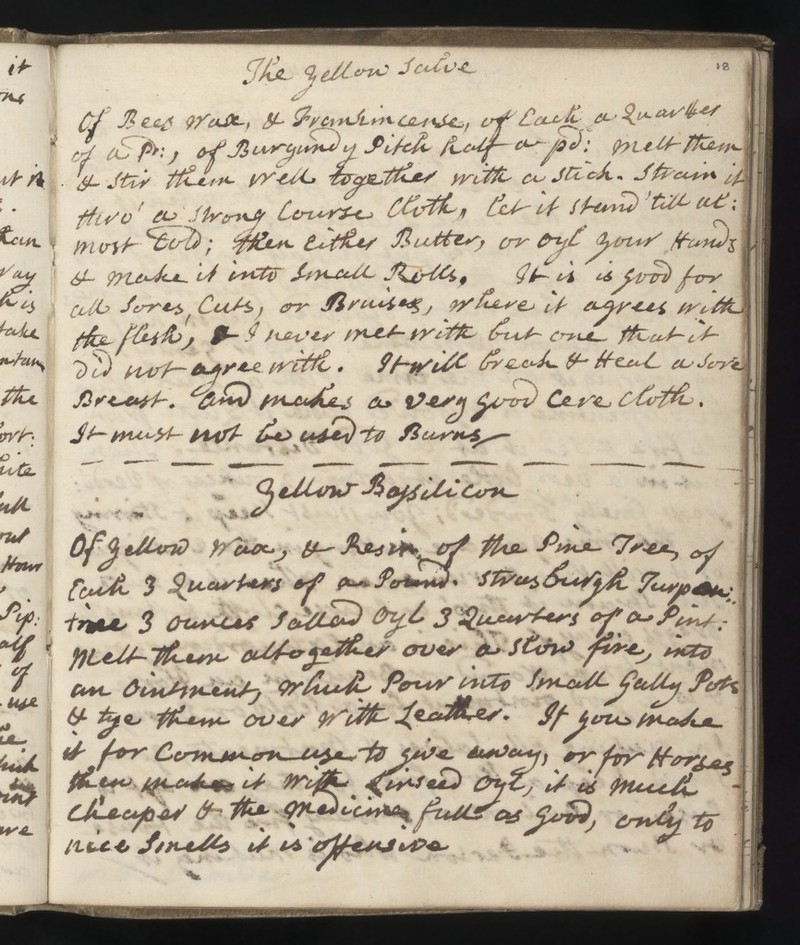 18
The Yellow Salve
Of Bees Wax, & Frankincense, of Each a Quarter
of a Pr:, of Burgundy Pitch half a pd: melt them
& stir them Well together with a stick. Strain it
thro' a Strong Course Cloth, let it stand 'till al:
most Cold; then Either Butter, or oyl your Hands
& make it into Small Rolls. It is is good for
all Sores, Cuts, or Bruises, where it agrees with
the flesh, & I never met with but one that it
Did not agree with. It will break & Heal a Sore
Breast. And makes a very good Cere Cloth.
It must not be used to Burns
Yellow Bassilicon
Of Yellow Wax, & Resin, of the Pine Tree, of
Each 3 Quarters of a Pound. Strasburgh Turpen:
tine 3 ounces Sallad Oyl 3 Quarters of a Pint:
Melt them altogether over a slow fire, into
an Ointment, which Pour into Small Gally Pots
& tye them over With Leather. If you make
it for Common use to give away, or for Horses
then make it With Linseed Oyl, it is much
Cheaper & the Medicine full as Good, only to
nice Smells it is offensive
it
ons
ut in
the
ort:
out
Hour
Pip:
alf
of
use